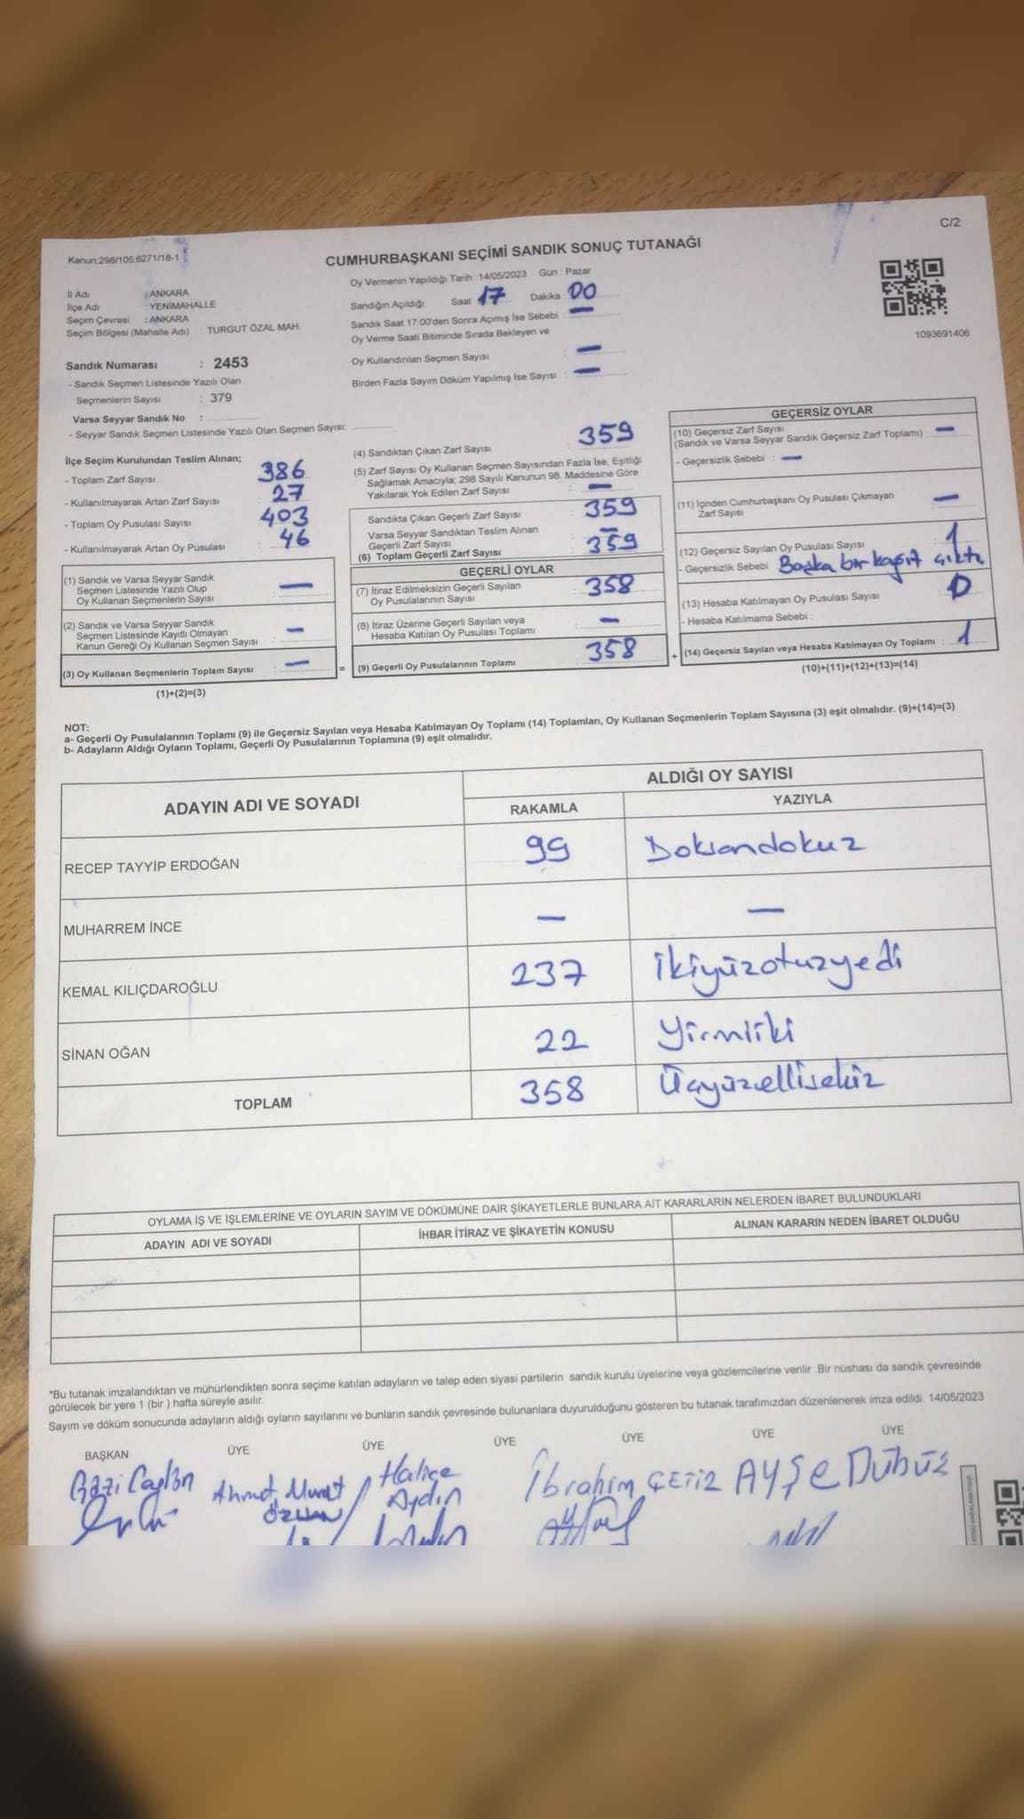 C/2
Kanun:298/105:6271/18-1
CUMHURBAŞKANI SEÇİMİ SANDIK SONUÇ TUTANAĞI
Oy Vermenin Yapıldığı Tarih :14/05/2023 Gün : Pazar
İl Adı : ANKARA
İlçe Adı : YENİMAHALLE
Seçim Çevresi : ANKARA
Seçim Bölgesi (Mahalle Adı) : TURGUT ÖZAL MAH.
Sandığın Açıldığı Saat 17 Dakika 00
Sandık Saat 17:00'den Sonra Açımış İse Sebebi : —
Oy Verme Saati Bitiminde Sırada Bekleyen ve
Oy Kullandırılan Seçmen Sayısı : —
Birden Fazla Sayım Döküm Yapılmış İse Sayısı : —
1093691406
Sandık Numarası : 2453
- Sandık Seçmen Listesinde Yazılı Olan
Seçmenlerin Sayısı : 379
Varsa Seyyar Sandık No :
- Seyyar Sandık Seçmen Listesinde Yazılı Olan Seçmen Sayısı:
İlçe Seçim Kurulundan Teslim Alınan;
- Toplam Zarf Sayısı : 386
- Kullanılmayarak Artan Zarf Sayısı : 27
- Toplam Oy Pusulası Sayısı : 403
- Kullanılmayarak Artan Oy Pusulası : 46
(1) Sandık ve Varsa Seyyar Sandık
Seçmen Listesinde Yazılı Olup
Oy Kullanan Seçmenlerin Sayısı —
(2) Sandık ve Varsa Seyyar Sandık
Seçmen Listesinde Kayıtlı Olmayan
Kanun Gereği Oy Kullanan Seçmen Sayısı —
(3) Oy Kullanan Seçmenlerin Toplam Sayısı —
(1)+(2)=(3)
(4) Sandıktan Çıkan Zarf Sayısı : 359
(5) Zarf Sayısı Oy Kullanan Seçmen Sayısından Fazla İse, Eşitliği
Sağlamak Amacıyla; 298 Sayılı Kanunun 98. Maddesine Göre
Yakılarak Yok Edilen Zarf Sayısı : —
Sandıkta Çıkan Geçerli Zarf Sayısı : 359
Varsa Seyyar Sandıktan Teslim Alınan
Geçerli Zarf Sayısı : —
(6) Toplam Geçerli Zarf Sayısı 359
GEÇERLİ OYLAR
(7) İtiraz Edilmeksizin Geçerli Sayılan
Oy Pusulalarının Sayısı : 358
(8) İtiraz Üzerine Geçerli Sayılan veya
Hesaba Katılan Oy Pusulası Toplamı : —
= (9) Geçerli Oy Pusulalarının Toplamı : 358
GEÇERSİZ OYLAR
(10) Geçersiz Zarf Sayısı
(Sandık ve Varsa Seyyar Sandık Geçersiz Zarf Toplamı) —
- Geçersizlik Sebebi : —
(11) İçinden Cumhurbaşkanı Oy Pusulası Çıkmayan
Zarf Sayısı —
(12) Geçersiz Sayılan Oy Pusulası Sayısı : 1
- Geçersizlik Sebebi Başka bir kağıt çıktı
(13) Hesaba Katılmayan Oy Pusulası Sayısı : 0
- Hesaba Katılmama Sebebi :
+ (14) Geçersiz Sayılan veya Hesaba Katılmayan Oy Toplamı : 1
(10)+(11)+(12)+(13)=(14)
NOT:
a- Geçerli Oy Pusulalarının Toplamı (9) ile Geçersiz Sayılan veya Hesaba Katılmayan Oy Toplamı (14) Toplamları, Oy Kullanan Seçmenlerin Toplam Sayısına (3) eşit olmalıdır. (9)+(14)=(3)
b- Adayların Aldığı Oyların Toplamı, Geçerli Oy Pusulalarının Toplamına (9) eşit olmalıdır.
ADAYIN ADI VE SOYADI
ALDIĞI OY SAYISI
RAKAMLA YAZIYLA
RECEP TAYYİP ERDOĞAN 99 Doksandokuz
MUHARREM İNCE — —
KEMAL KILIÇDAROĞLU 237 ikiyüzotuzyedi
SİNAN OĞAN 22 Yirmiiki
TOPLAM 358 Üçyüzellisekiz
OYLAMA İŞ VE İŞLEMLERİNE VE OYLARIN SAYIM VE DÖKÜMÜNE DAİR ŞİKAYETLERLE BUNLARA AİT KARARLARIN NELERDEN İBARET BULUNDUKLARI
ADAYIN ADI VE SOYADI İHBAR İTİRAZ VE ŞİKAYETİN KONUSU ALINAN KARARIN NEDEN İBARET OLDUĞU
*Bu tutanak imzalandıktan ve mühürlendikten sonra seçime katılan adayların ve talep eden siyasi partilerin sandık kurulu üyelerine veya gözlemcilerine verilir .Bir nüshası da sandık çevresinde
görülecek bir yere 1 (bir ) hafta süreyle asılır.
Sayım ve döküm sonucunda adayların aldığı oyların sayılarını ve bunların sandık çevresinde bulunanlara duyurulduğunu gösteren bu tutanak tarafımızdan düzenlenerek imza edildi. 14/05/2023
BAŞKAN ÜYE ÜYE ÜYE ÜYE ÜYE ÜYE
Gazi Ceylan Ahmet Murat ÖZHAN Halice Aydın İbrahim ÇETİZ AYŞE DUBUZ